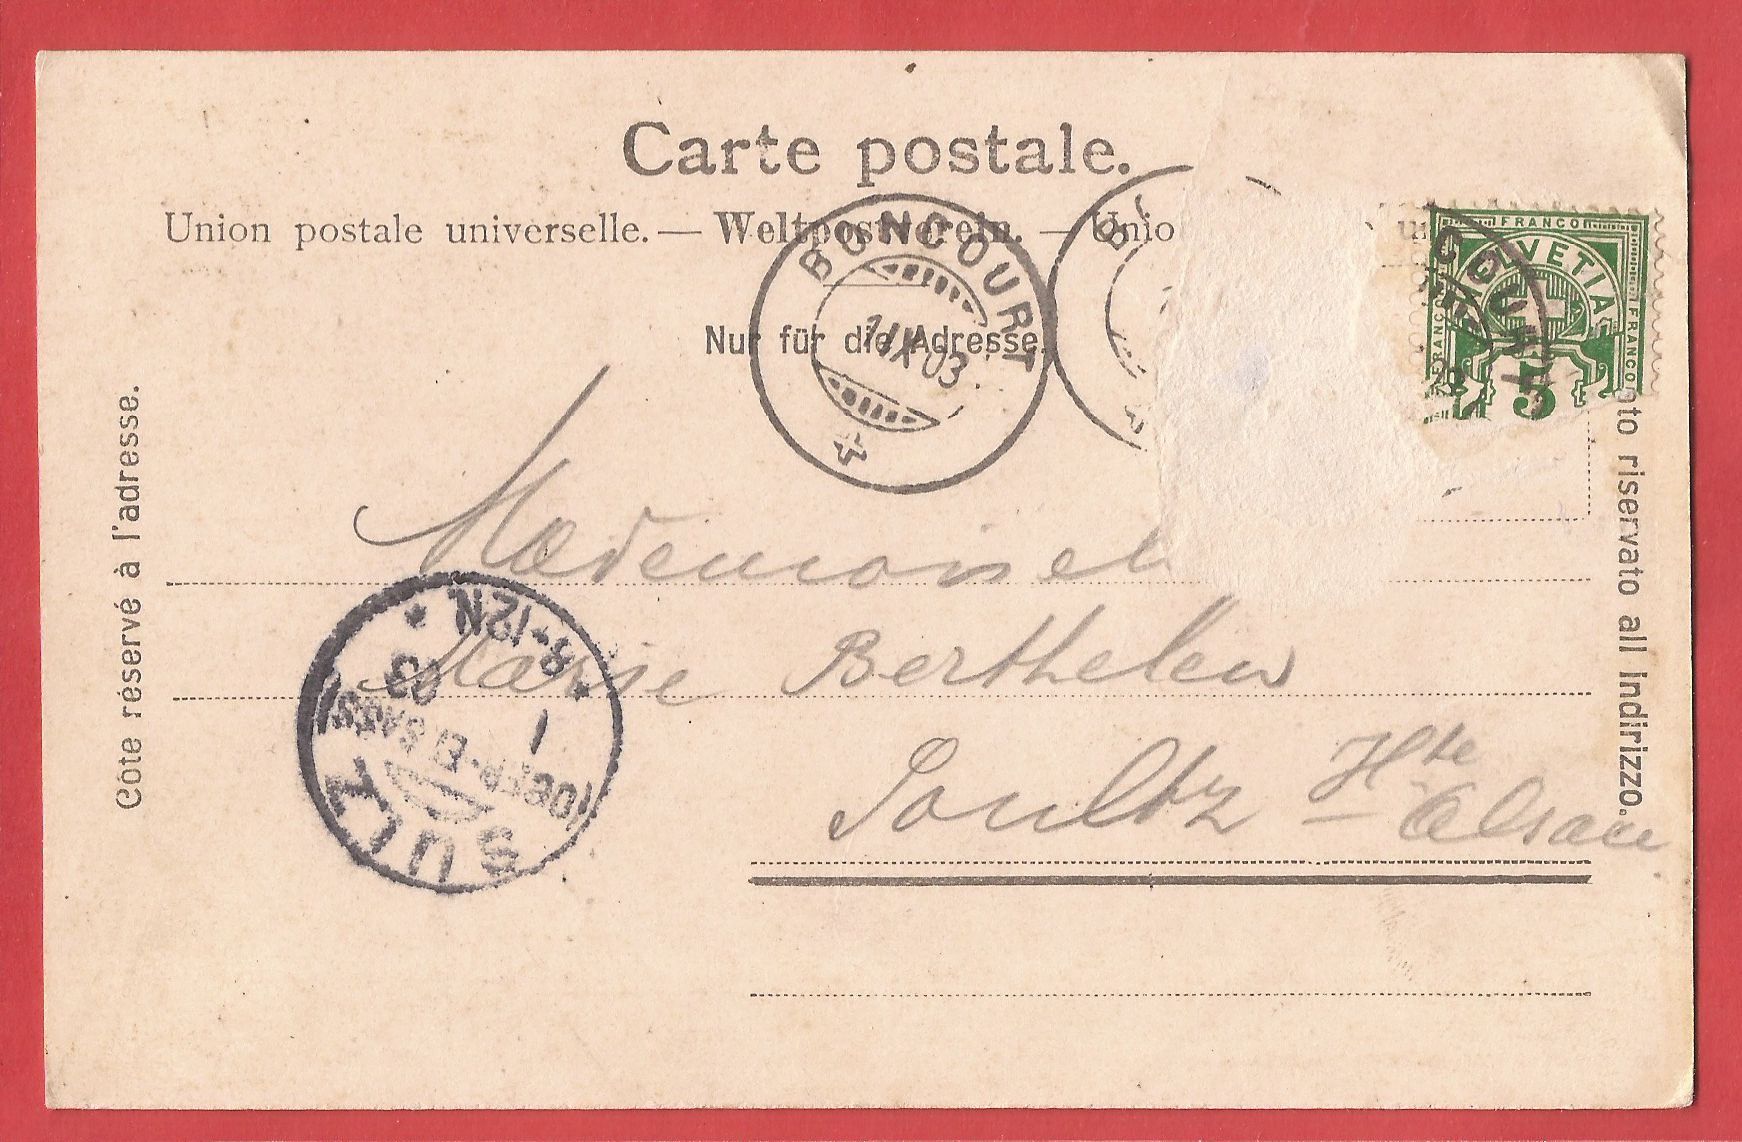 Carte postale.
Union postale universelle. — Weltpostverein. — Unio
Nur für die Adresse.
Côte réservé à l'adresse.
riservato all Indirizzo.
BONCOURT
1 IX 03
COURT
FRANCO
HELVETIA
FRANCO
FRANCO
5
Mademoisel
Marie Berthelen
Soultz Hte Alsace
SULZ
(OBER-ELSASS)
1
03
8-12N.